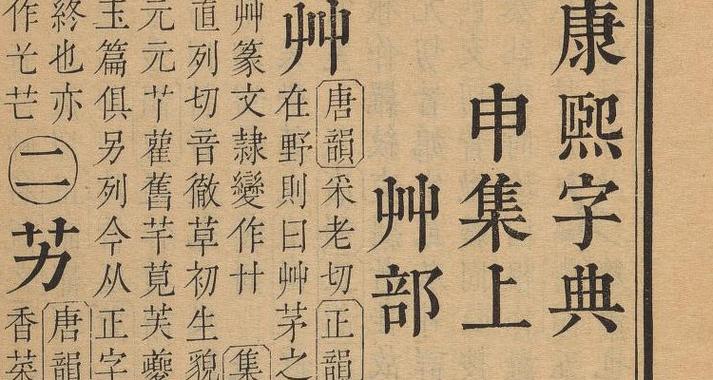 康熙字典
申集上
艸部
艸
唐韻采老切正韻
在野則曰艸茅之
艸篆文隸變作卄集
直列切音徹草初生貌
元元艼雚舊芉萈芙夔
玉篇俱另列今从正字
終也亦
作㐂芒
二
艻
唐韻
香菜